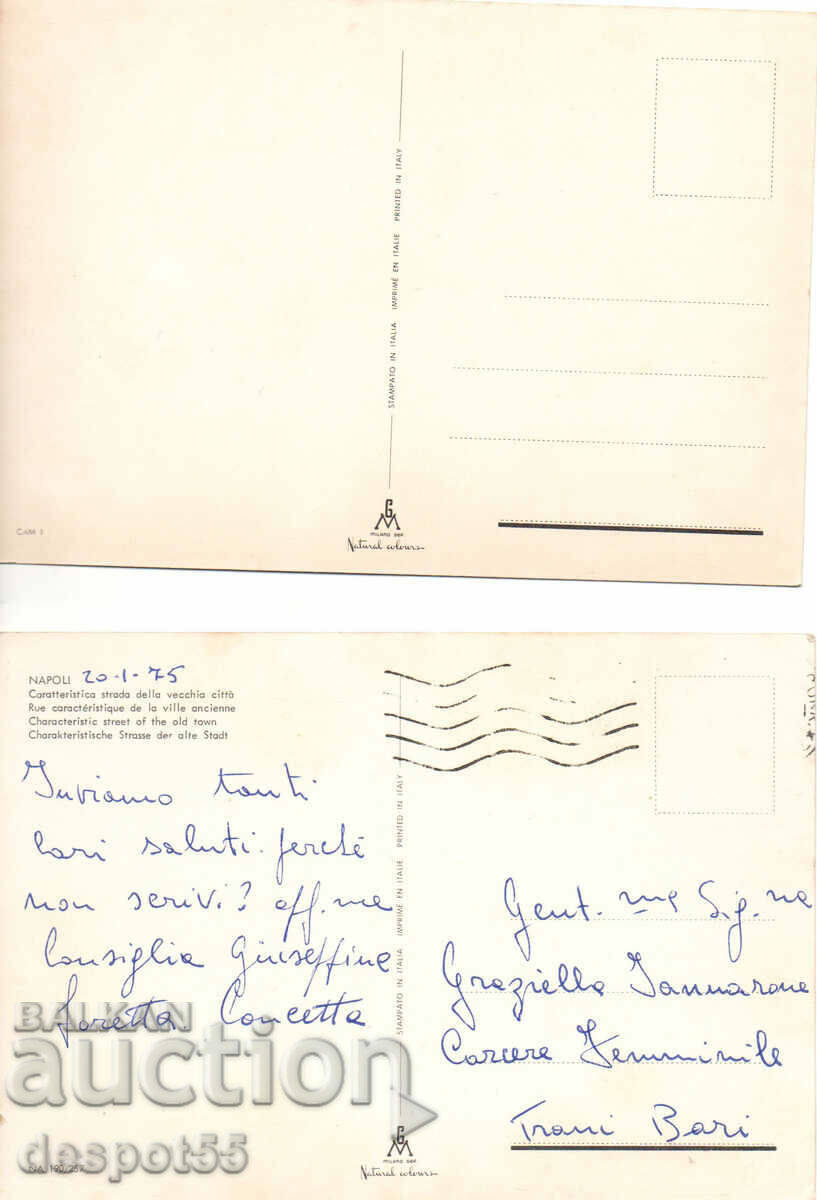 STAMPATO IN ITALIA IMPRIMÉ EN ITALIE PRINTED IN ITALY
CAM 1
GM
MILANO DEP.
Natural colours
NAPOLI 20-1-75
Caratteristica strada della vecchia città
Rue caractéristique de la ville ancienne
Characteristic street of the old town
Charakteristische Strasse der alte Stadt
Inviamo tanti
cari saluti. perché
non scrivi? aff.me
Consiglia Giuseppina
Loretta Concetta
STAMPATO IN ITALIA IMPRIMÉ EN ITALIE PRINTED IN ITALY
Gent.ma Sig.na
Graziella Iannarone
Carcere Femminile
Trani Bari
NA 190/257
GM
MILANO DEP.
Natural colours
BALKAN
auction
despot55